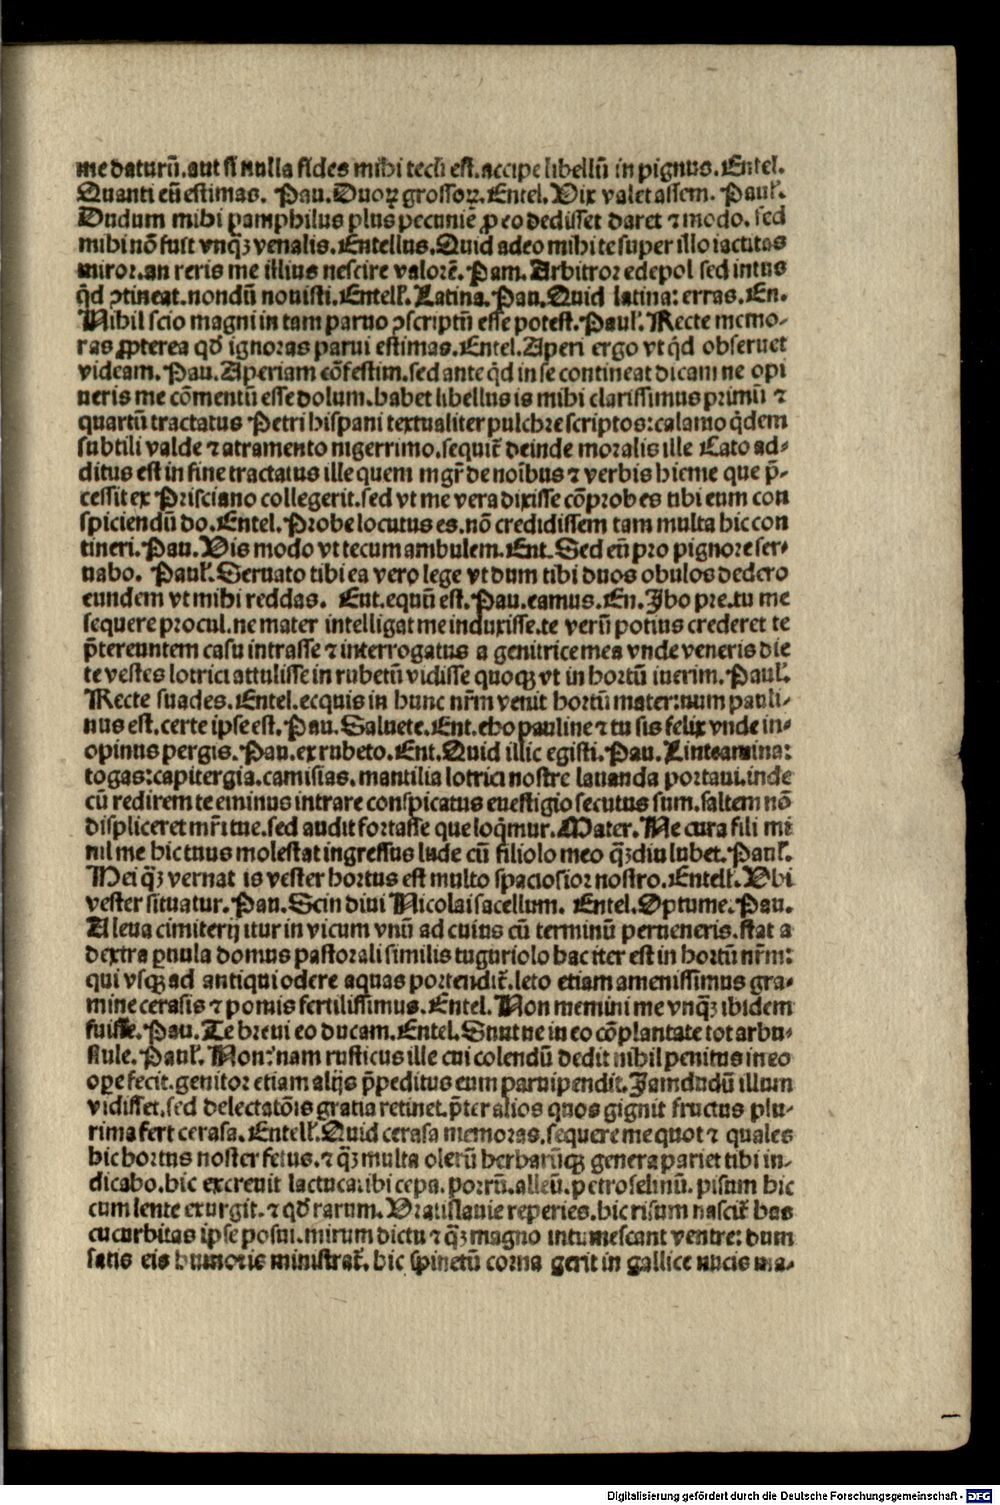 me daturū.aut si nulla fides mihi tecū est.accipe libellū in pignus.Entel.
Quanti eū estimas. Pau.Duoꝝ grossoꝝ.Entel.Vix valet assem. Paul̉.
Dudum mihi pamphilus plus pecunie ꝓ eo dedisset daret ⁊ modo. sed
mihi nō fuit vnqꝫ venalis.Entellus.Quid adeo mihi te super illo iactitas
miror.an reris me illius nescire valorē.Pam.Arbitror edepol sed intus
q̇d ꝯtineat.nondū nouisti.Entell̉.Latina.Pau.Quid latina: erras.En.
Nihil scio magni in tam paruo ꝯscriptū esse potest.Paul̉.Recte memo-
ras ꝓpterea qđ ignoras parui estimas.Entel.Aperi ergo vt q̇d obseruet
videam.Pau.Aperiam cōfestim.sed ante q̇d in se contineat dicam ne opi
neris me cōmentū esse dolum.habet libellus is mihi clarissimus primū ⁊
quartū tractatus Petri hispani textualiter pulchre scriptos:calamo q̇dem
subtili valde ⁊ atramento nigerrimo.sequit̉ deinde moralis ille Cato ad-
ditus est in fine tractatus ille quem mgr̄ de noībus ⁊ verbis hieme que p̄-
cessit ex Prisciano collegerit.sed vt me vera dixisse cōprobes tibi eum con
spiciendū do.Entel.Probe locutus es.nō credidissem tam multa hic con
tineri.Pau.Vis modo vt tecum ambulem.Ent.Sed eū pro pignore ser-
uabo. Paul̉.Seruato tibi ea vero lege vt dum tibi duos obulos dedero
eundem vt mihi reddas. Ent.equū est.Pau.eamus.En.Ibo pre.tu me
sequere procul.ne mater intelligat me induxisse.te verū potius crederet te
p̄tereuntem casu intrasse ⁊ interrogatus a genitrice mea vnde veneris die
te vestes lotrici attulisse in rubetū vidisse quoqꝫ vt in hortū iuerim.Paul̉.
Recte suades.Entel.ecquis in hunc nr̄m venit hortū mater:num pauli-
nus est.certe ipse est.Pau.Saluete.Ent.eho pauline ⁊ tu sis felix vnde in-
opinus pergis.Pau.ex rubeto.Ent.Quid illic egisti.Pau.Linteamina:
togas:capitergia.camisias.mantilia lotrici nostre lauanda portaui.inde
cū redirem te eminus intrare conspicatus euestigio secutus sum.saltem nō
displiceret mr̄i tue.sed audit fortasse que loq̇mur.Mater.Ne cura fili mi
nil me hic tuus molestat ingressus lude cū filiolo meo qꝫdiu lubet.Paul̉.
Mei qꝫ vernat is vester hortus est multo spaciosior nostro.Entell̉.Vbi
vester situatur.Pau.Scin diui Nicolai sacellum. Entel.Optume.Pau.
A leua cimiterij itur in vicum vnū ad cuius cū terminū perueneris.stat a
dextra ꝑuula domus pastorali similis tuguriolo hac iter est in hortū nr̄m:
qui vsqꝫ ad antiqui odere aquas portendit̉.leto etiam amenissimus gra-
mine cerasis ⁊ pomis fertilissimus.Entel.Non memini me vnqꝫ ibidem
fuisse.Pau.Te breui eo ducam.Entel.Suntne in eo cōplantate tot arbu-
stule.Paul̉.Non:nam rusticus ille cui colendū dedit nihil penitus in eo
oꝑe fecit.genitor etiam alijs p̄peditus eum paruipendit.Jamdudū illum
vidisset.sed delectatōis gratia retinet.p̄ter alios quos gignit fructus plu-
rima fert cerasa.Entell̉.Quid cerasa memoras.sequere me quot ⁊ quales
hic hortus noster fetus.⁊ qꝫ multa olerū herbarūqꝫ genera pariet tibi in-
dicabo.hic excreuit lactuca:ibi cepa.porrū.alleū.petroselinū.pisum hic
cum lente exurgit.⁊ qđ rarum.Vratislauie reperies.hic risum nascit̉ has
cucurbitas ipse posui.mirum dictu ⁊ qꝫ magno intumescant ventre: dum
satis eis humoris ministrat̉.hic spinetū corna gerit in gallice nucis ma-
Digitalisierung gefördert durch die Deutsche Forschungsgemeinschaft - DFG